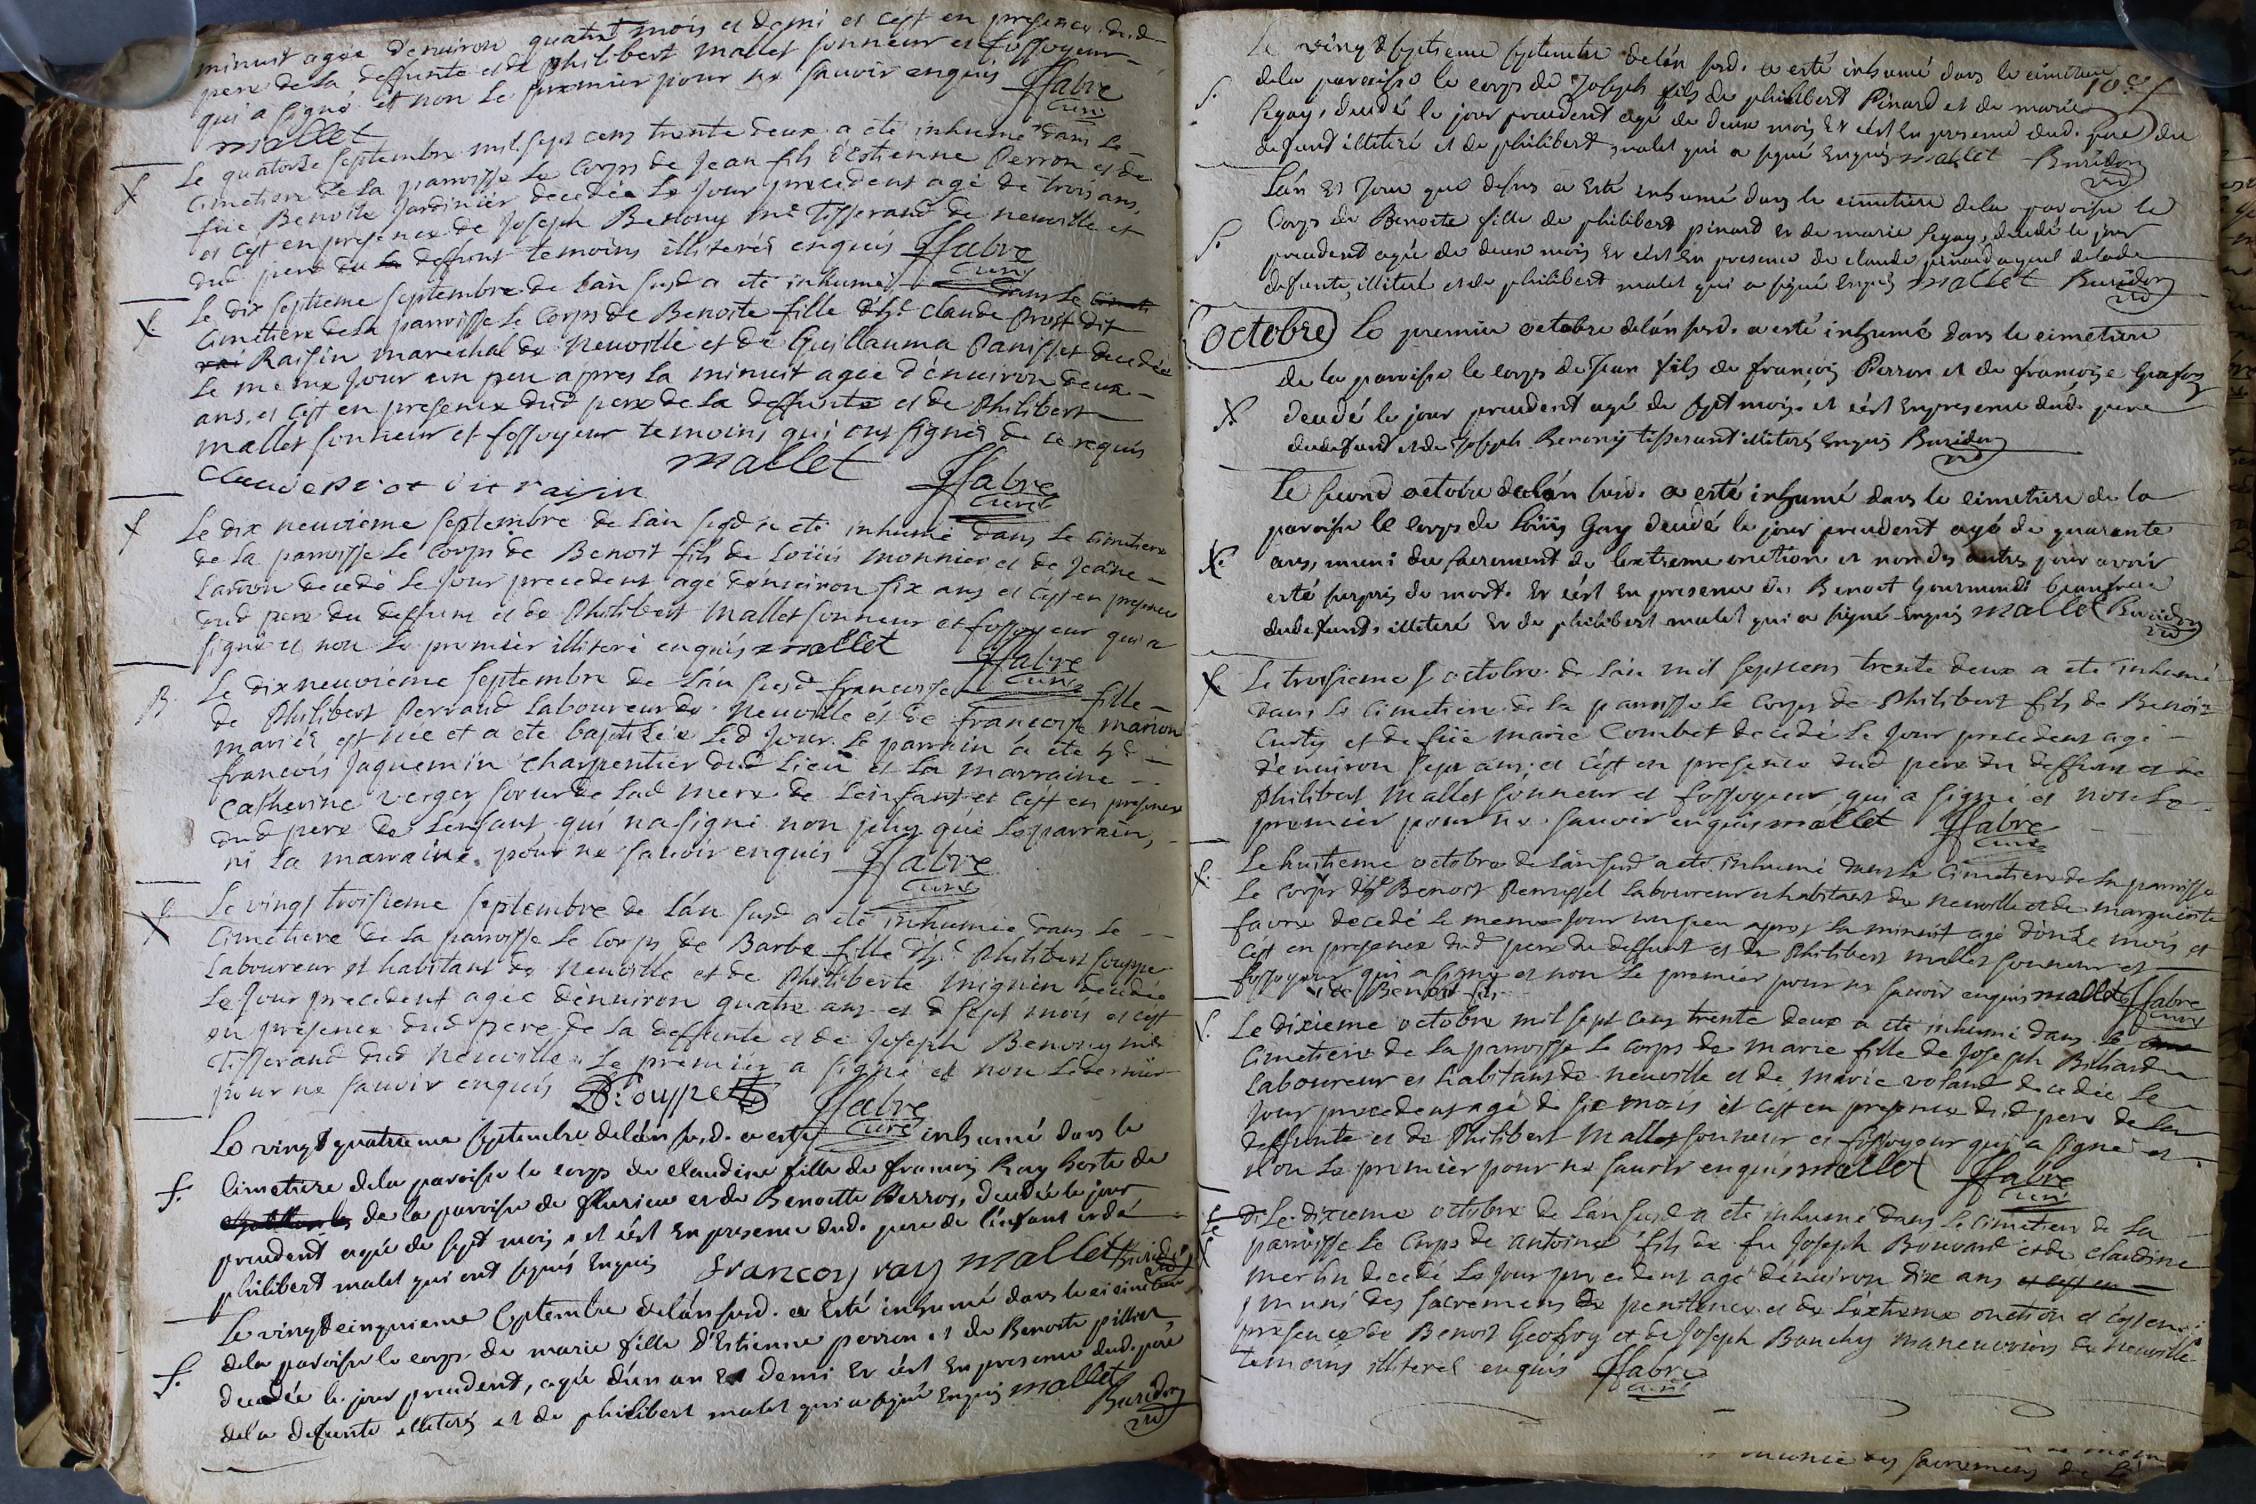 minuit agée d'enuiron quatre mois et demi et c'est en presence dud
pere de la deffunte et de philibert mallet sonneur et fossoyeur
qui a signé et non le premier pour ne sauoir enquis ffabre
mallet curé
Le quatorze septembre mil sept cens trente deux a eté inhumé dans le
cimetiere de la parroisse le corps de jean fils d'Estienne Perron et de
füe Benoite jardinier decedée le jour precedent agé de trois ans,
et c'est en presence de joseph Benony me Tisserand de neuuille et
dud pere du la deffunt temoins illiterés enquis ffabre
curé
Le dix septieme septembre de l'an susd a eté inhumé dans le cimet
cimetiere de la parroisse le corps de Benoite fille d'h.e claude Prost dit
Raisin marechal de neuuille et de Guillauma Panisset decedée
le meme jour un peu apres la minuit agée d'enuiron deux
ans, et c'est en presence dud pere de la deffunte et de Philibert
mallet sonneur et fossoyeur temoins qui ont signés de ce requis
claude prot dit raisin mallet ffabre
curé
Le dix neuvieme septembre de l'an susd a eté inhumé dans le cimetiere
de la parroisse le corps de Benoit fils de Loüis monnier et de jeane
Larron decedé le jour precedent agé d'enuiron six ans et c'est en presence
dud pere du deffunt et de Philibert mallet sonneur et fossoyeur qui a
signé et non le premier illiteré enquis mallet ffabre
curé
B. Le dixneuviéme septembre de l'an susd francoise fille
de Philibert Perraud Laboureur de neuuille et de francoise marion
mariés, est née et a eté baptisée led jour. le parrain a eté h.e
francois jaquemin charpentier dud Lieu et la marraine
catherine verger soeur de lad mere de l'enfant et c'est en presence
dud pere de l'enfant qui na signé non plus que le parrain,
ni la marraine pour ne sauoir enquis ffabre
curé
Le vingt troisieme septembre de l'an susd a eté inhumée dans le
cimetiere de la parroisse le corps de Barbe fille d'h.e Philibert souppe
Laboureur et habitant de neuuille et de Philiberte mignin decedée
le jour precedent agée d'enuiron quatre ans et d sept mois et c'est
en presence dud pere de la deffunte et de joseph Benony me
Tisserand dud neuuille, le premier a signé et non le dernier
pour ne sauoir enquis P. souppe ffabre
curé
f. Le vingt quatrieme septembre delán susd. a esté inhumé dans le
cimetiere dela paroisse le corps de claudine fille de francois Ray hoste de
de la paroisse de flurieu et de Benoitte Perros, decedée le jour
precedent agée de sept mois, et c'est en presence dud. pere de l'enfant et de
philibert malet qui ont signés enquis francoy ray mallet Buridon
vic
f. Le vingt cinquieme septembre delán susd. a esté inhumé dans le cimetiere
dela paroisse le corps de marie fille d'Estienne perron et de Benoite pillier,
decedée le jour precedent, agée d'un an et demi et c'est en presence dud. pere
dela defunte illiteré et de philibert malet qui a signé enquis mallet
Buridon
vic
Le vingt septieme septembre delán susd. a esté inhumé dans le cimetiere
dela paroisse le corps de joseph fils de philibert Pinard et de marie
f. Legay, decedé le jour precedent agé de deux mois et c'est en presence dud. pere du
defunt illiteré et de philibert malet qui a signé enquis mallet Buridon
vic
Lán et jour que dessus a esté inhumé dans le cimetiere dela paroisse le
f. Corps de Benoite fille de philibert pinard et de marie legay, decedé le jour
precedent agée de deux mois et c'est en presence de claude pinard ayeul de lade
defunte, illiteré et de philibert malet qui a signé enquis mallet Buridon
vic
octobre Le premier octobre delán susd. a esté inhumé dans le cimetiere
de la paroisse le corps de Jean fils de françois Perron et de françoise
decedé le jour precedent agé de sept mois, et c'est en presence dud. pere
dudefunt et de joseph Benony tisserant illiterés enquis Buridon
vic
Le second octobre delán susd. a esté inhumé dans le cimetiere de la
paroisse le corps de Loüis Gay decedé le jour precedent agé de quarante
ans, muni du sacrement de lextreme onction et non des autres pour avoir
esté surpris de mort. Et c'est en presence de Benoit Gourmand beaufrere
dudefunt, illiteré et de philibert malet qui a signé enquis mallet Buridon
vic
Le troisieme octobre de l'an mil sept cens trente deux a eté inhumé
dans le cimetiere de la parroisse le corps de Philibert fils de Benoit
Curty et de füe marie Combet decedé le jour precedent agé
d'enuiron sept ans, et c'est en presence dud pere du deffunt et de
Philibert mallet sonneur et fossoyeur qui a signé et non le
premier pour ne sauoir enquis mallet ffabre
curé
Le huitieme octobre de l'an susd a eté inhumé dans le cimetiere de la parroisse
le corps d'h.e Benoit Perrussel Laboureur et habitant de neuuille et de marguerite
favre decedé le meme jour un peu apres la minuit agé d'onze mois et
c'est en presence dud pere du deffunt et de Philibert mallet sonneur et
fossoyeur qui a signé et non le premier pour ne sauoir enquis mallet ffabre
de Benoit fils curé
Le dixieme octobre mil sept cens trente deux a eté inhumé dans le
cimetiere de la parroisse le corps de marie fille de joseph Billiard
Laboureur et habitant de neuuille et de marie voland decedée le
jour precedent agé de six mois et c'est en presence dud pere de la
deffunte et de Philibert mallet sonneur et fossoyeur qui a signé et
non le premier pour ne sauoir enquis mallet ffabre
curé
Le dixieme octobre de l'an susd a eté inhumé dans le cimetiere de la
parroisse le corps de antoine fils de fu joseph Bouvard et de claudine
merlin decedé le jour precedent agé d'enuiron dix ans et c'est en
muni des sacremens de penitence et de l'extreme onction et c'est en
presence de Benoit Geofroy et de joseph Banchy maneuvriers de neuuille
temoins illiterés enquis ffabre
curé